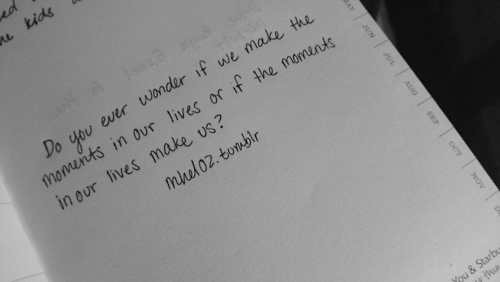 the kids
Do you ever wonder if we make the
moments in our lives or if the moments
in our lives make us?
mhel02.tumblr
JUN
JUL
AUG
SEP
OCT
NOV
You & Starbu